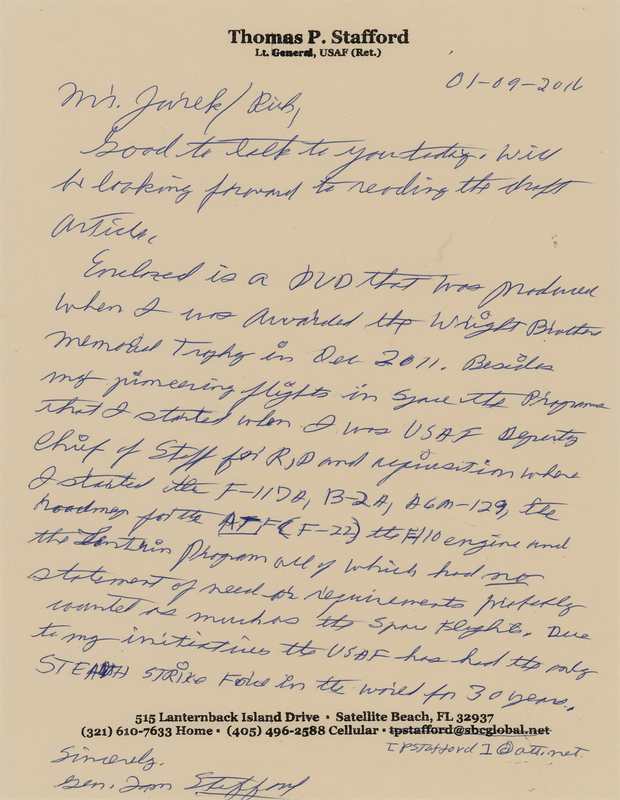 Thomas P. Stafford
Lt. General, USAF (Ret.)
01-09-2016
Mr. Jarek / Rich,
Good to talk to you today. Will
be looking forward to reading the draft
article.
Enclosed is a DVD that was produced
when I was awarded the Wright Brothers
Memorial Trophy in Dec 2011. Besides
my pioneering flights in space the Programs
that I started when I was USAF Deputy
Chief of Staff for R, D and aquisition where
I started the F-117A, B-2A, AGM-129, the
Roadmap for the ATF (F-22) the F110 engine and
the Lantirn Program all of which had no
statement of need or requirements probably
counted as much as the Space Flights. Due
to my initiatives the USAF has had the only
STEALTH STRIKE Force in the world for 30 years.
515 Lanternback Island Drive • Satellite Beach, FL 32937
(321) 610-7633 Home • (405) 496-2588 Cellular • tpstafford@sbcglobal.net
tpstafford1@att.net.
Sincerely.
Gen. Tom Stafford